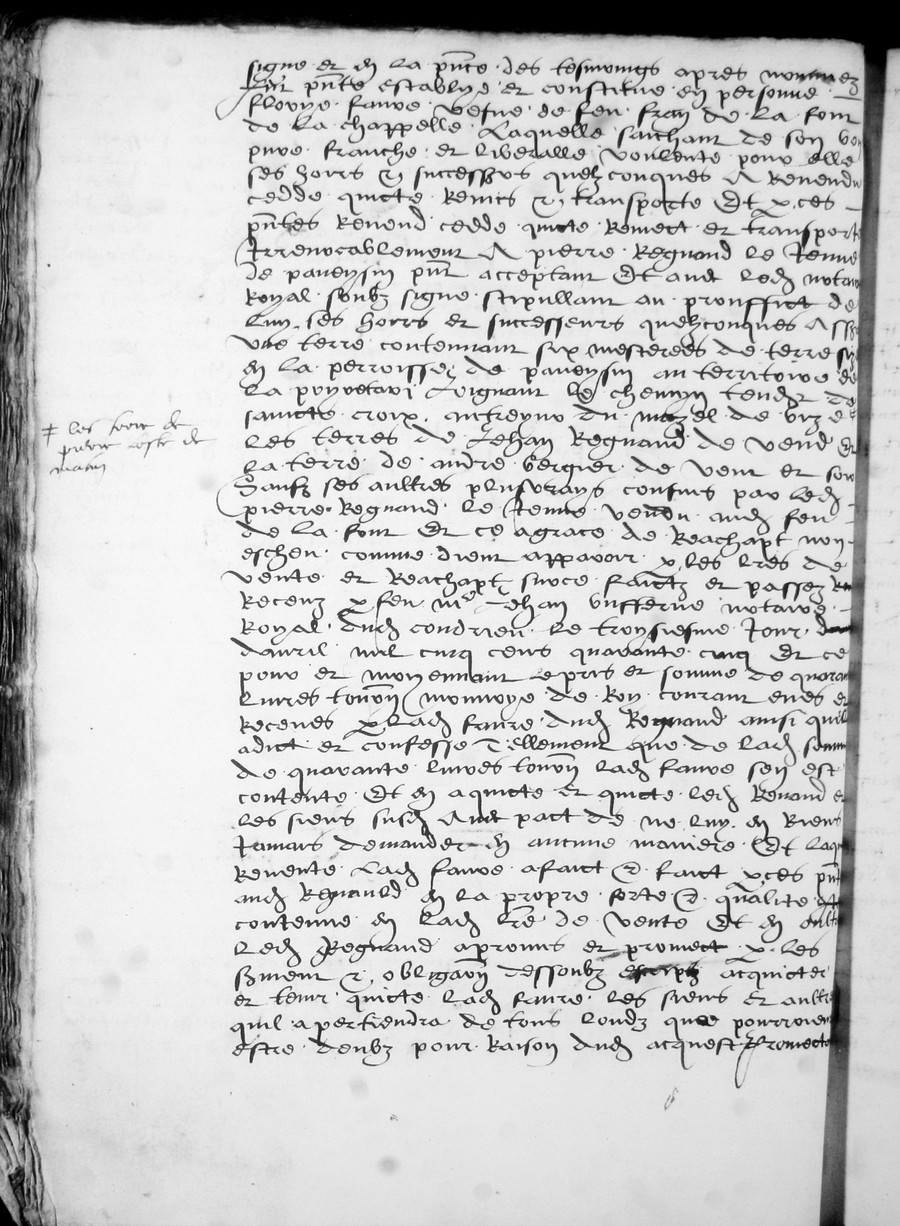 signe et en la pnce des tesmoings apres nommez
fut pnte establye et constitue en personne
florye faure vefve de feu fran de la font
de la chappelle Laquelle saichant de son bon
pure franche et liberalle voulente pour elle
ses hoirs et successrs quelzconques A Revendu
cedde quicte Remis et transporte Et p ces
pntes Revend cedde quicte Remect et transporte
Irrevocablement A pierre Regnaud le Jeune
de paveysin pnt acceptant Et avec led notaire
Royal soubz signe stipullant au prouffict de
luy ses hoirs et successeurs quelzconques Assr
Une terre contenant six mesterees de terre size
en la perroisse de paveysin au territoire de
la Joignant le chemyn tendt de
saincte croix au mazel de vize
les terres de Jehan Regnaud de vend et
‡ les terre de
pierre coste de
matin
la terre de andre bergier de vent et soir
Saufz ses aultres plusvrays confins par led
pierre Regnaud le Jeune vendu aud feu
de la font Et ce a grace de Reachapt non
escheu comme dient apparoir p les lres de
vente et Reachapt surce faictz et passez
Receuz p feu me Jehan notaire
Royal dud condrieu le troysiesme Jour
davril mil cinq cens quarante cinq Et ce
pour et moyennant le pris et somme de quarante
livres tourn monnoye de Roy courant eues et
Receues p lad faure dud Regnaud ainsi quil
a dict et confesse Tellement que de lad somme
de quarante livres tourn lad faure sen est
contente Et en a quicte et quicte led Renaud et
les siens susd Avec pact de ne luy en Riens
Jamais demander en aucune maniere Et laqu
Revente Lad faure a faict et faict p ces pnt
aud Regnauld en la propre sorte et qualite
contenue en lad lre de vente Et en oultre
Led Regnaud a promis et promect p les
srment et obligaon dessoubz escriptz acquicter
et tenir quicte lad faure les siens et aultre
quil apertiendra de tous loudz que pourroient
estre deubz pour Raison dud acquest Promecta